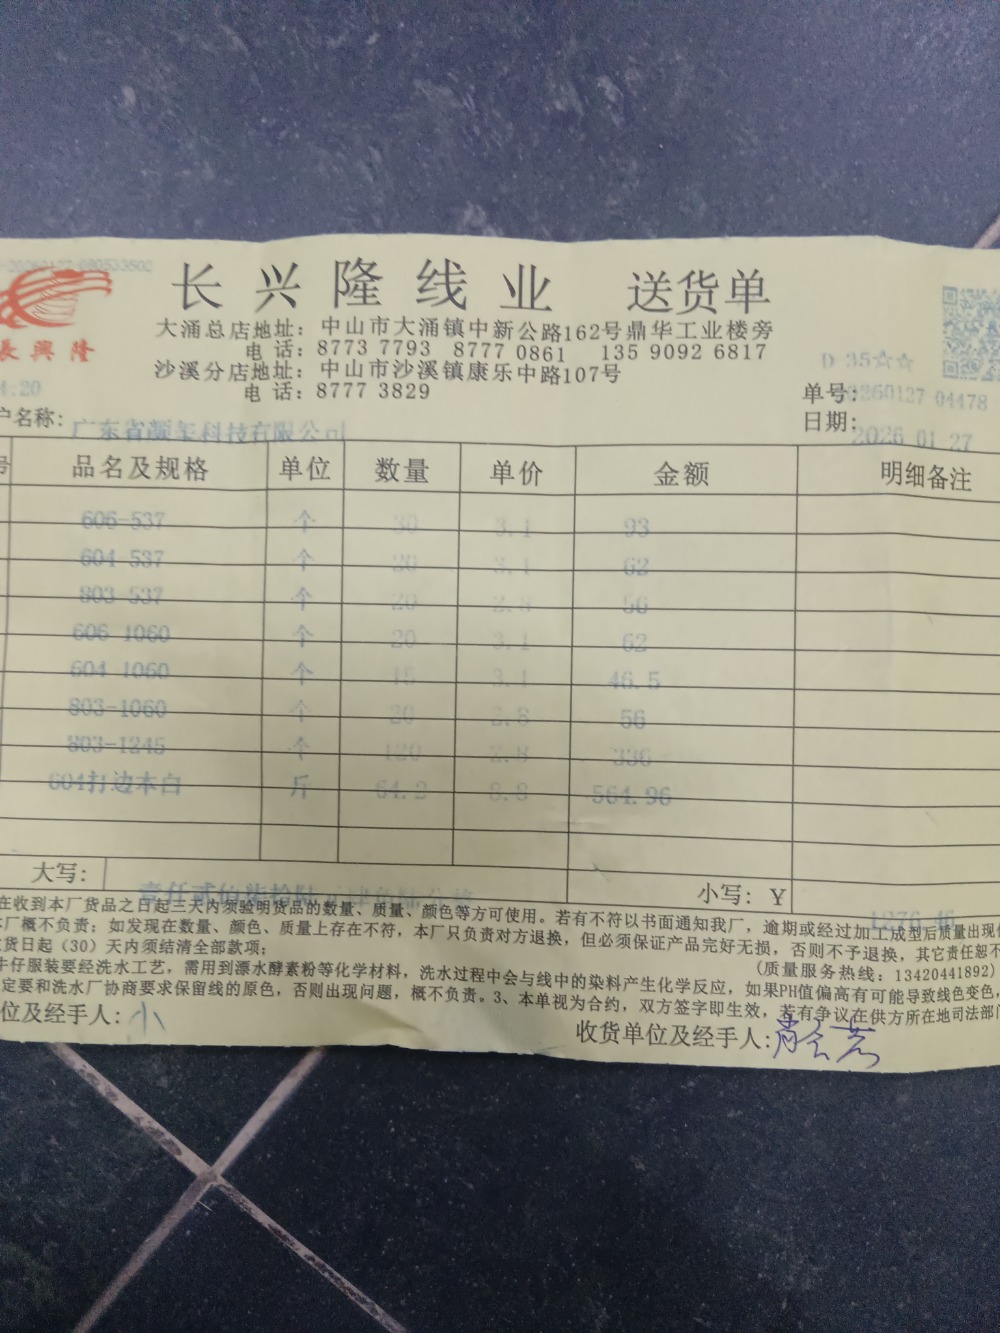 长兴隆线业 送货单
大涌总店地址：中山市大涌镇中新公路162号鼎华工业楼旁
电 话：8773 7793 8777 0861 135 9092 6817
沙溪分店地址：中山市沙溪镇康乐中路107号
电 话：8777 3829
長興隆
4:20
D 35☆☆
单号：20260127 04478
日期：2026 01 27
户名称：广东省颜玺科技有限公司
号 品名及规格 单位 数量 单价 金额 明细备注
606-537 个 30 3.1 93
604-537 个 20 3.1 62
803-537 个 20 2.8 56
606-1060 个 20 3.1 62
604-1060 个 15 3.1 46.5
803-1060 个 20 2.8 56
803-1245 个 120 2.8 336
604打边本白 斤 64.2 8.8 564.96
大写： 壹仟贰佰柒拾陆 小写：￥ 1276.46
在收到本厂货品之日起三天内须验明货品的数量、质量、颜色等方可使用。若有不符以书面通知我厂，逾期或经过加工成型后质量出现
厂概不负责；如发现在数量、颜色、质量上存在不符，本厂只负责对方退换，但必须保证产品完好无损，否则不予退换，其它责任恕不
货日起（30）天内须结清全部款项； （质量服务热线：13420441892）
牛仔服装要经洗水工艺，需用到漂水酵素粉等化学材料，洗水过程中会与线中的染料产生化学反应，如果PH值偏高有可能导致线色变色，
定要和洗水厂协商要求保留线的原色，否则出现问题，概不负责。3、本单视为合约，双方签字即生效，若有争议在供方所在地司法部门
位及经手人：小
收货单位及经手人：